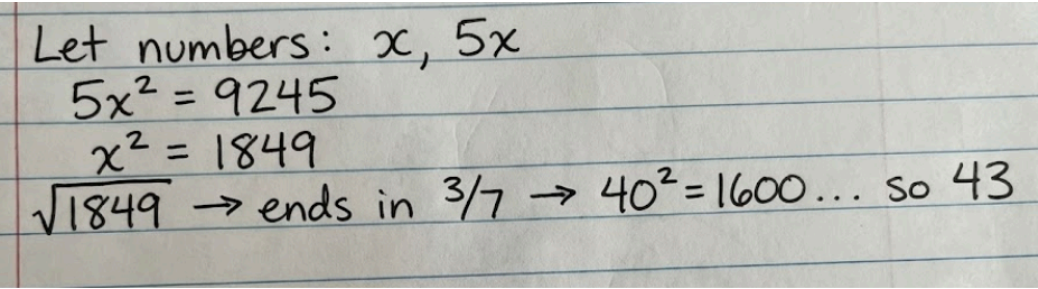 Let numbers: x, 5x
5x² = 9245
x² = 1849
√1849 → ends in 3/7 → 40² = 1600... so 43